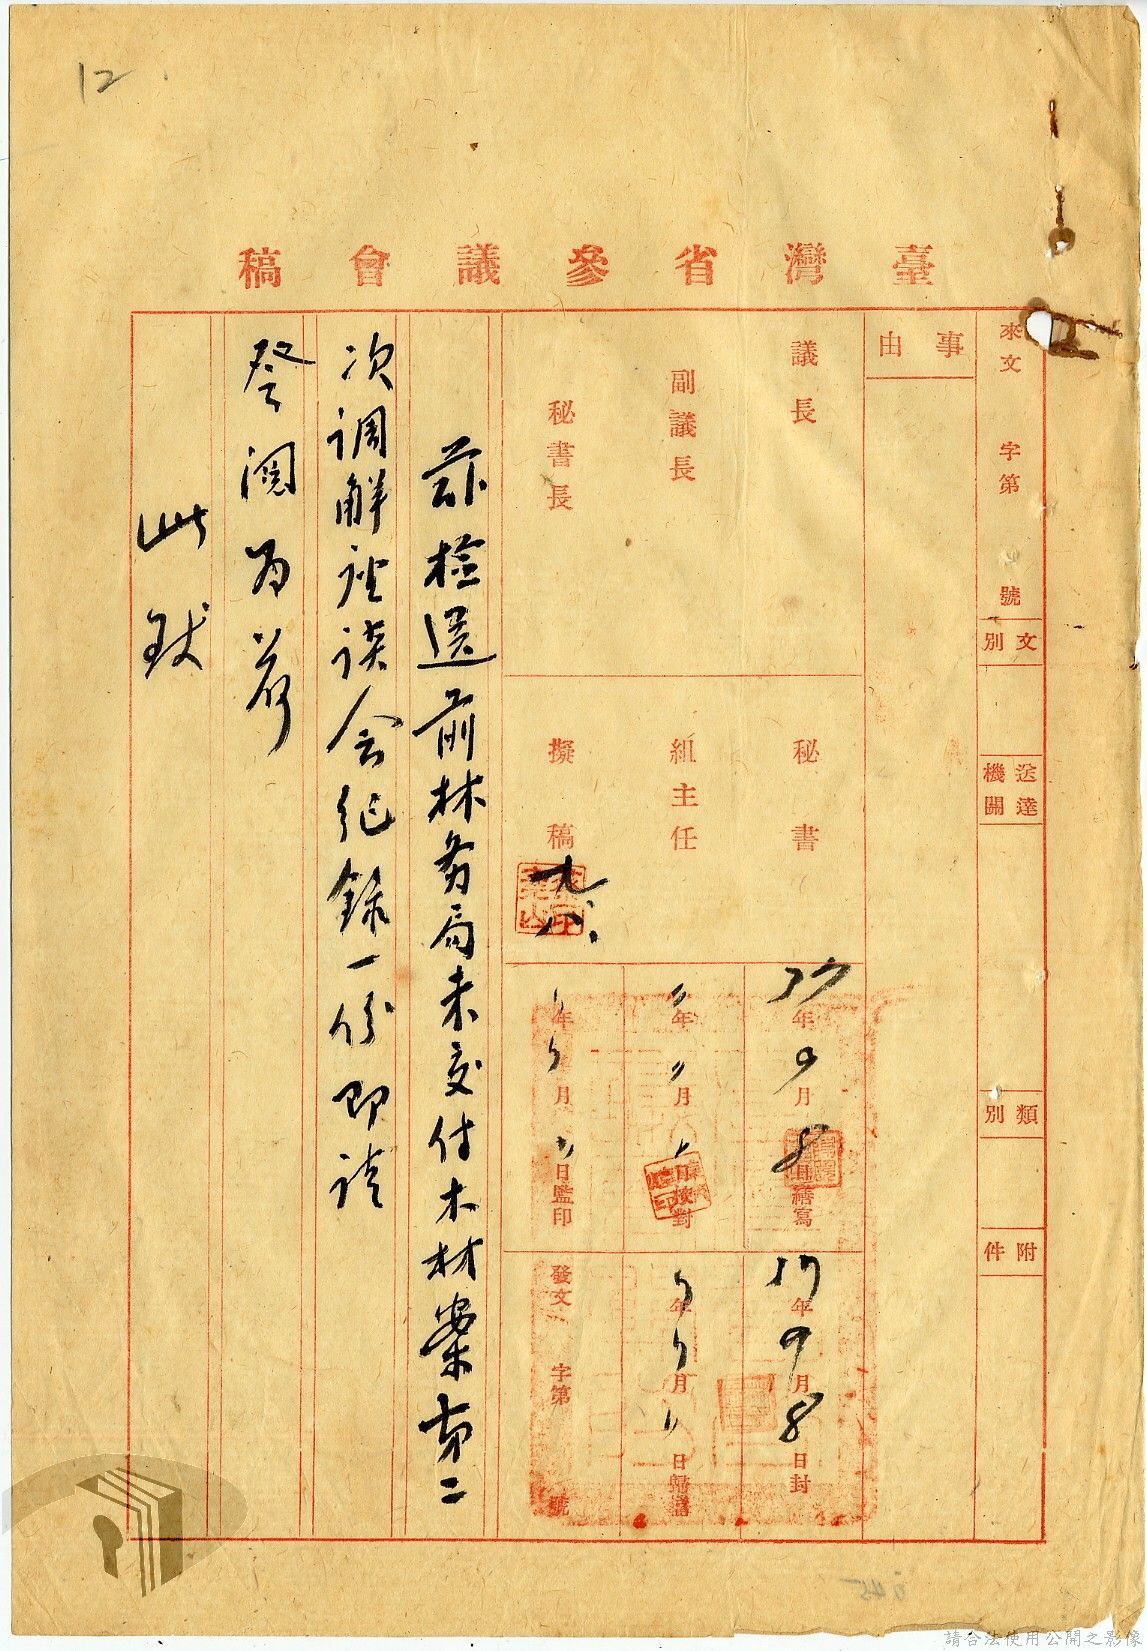 12
臺灣省參議會稿
來文 字第 號
文別
送達機關
類別
附件
事由
議長
副議長
秘書長
秘書
組主任
擬稿
九八
37年9月8日繕寫
〃年〃月〃日校對
〃年〃月〃日監印
37年9月8日封
〃年〃月〃日歸檔
發文 字第 號
茲檢送前林务局未交付木材案第二
次调解座谈会纪録一份即请
詧阅为荷
此致
請合法使用公開之影像